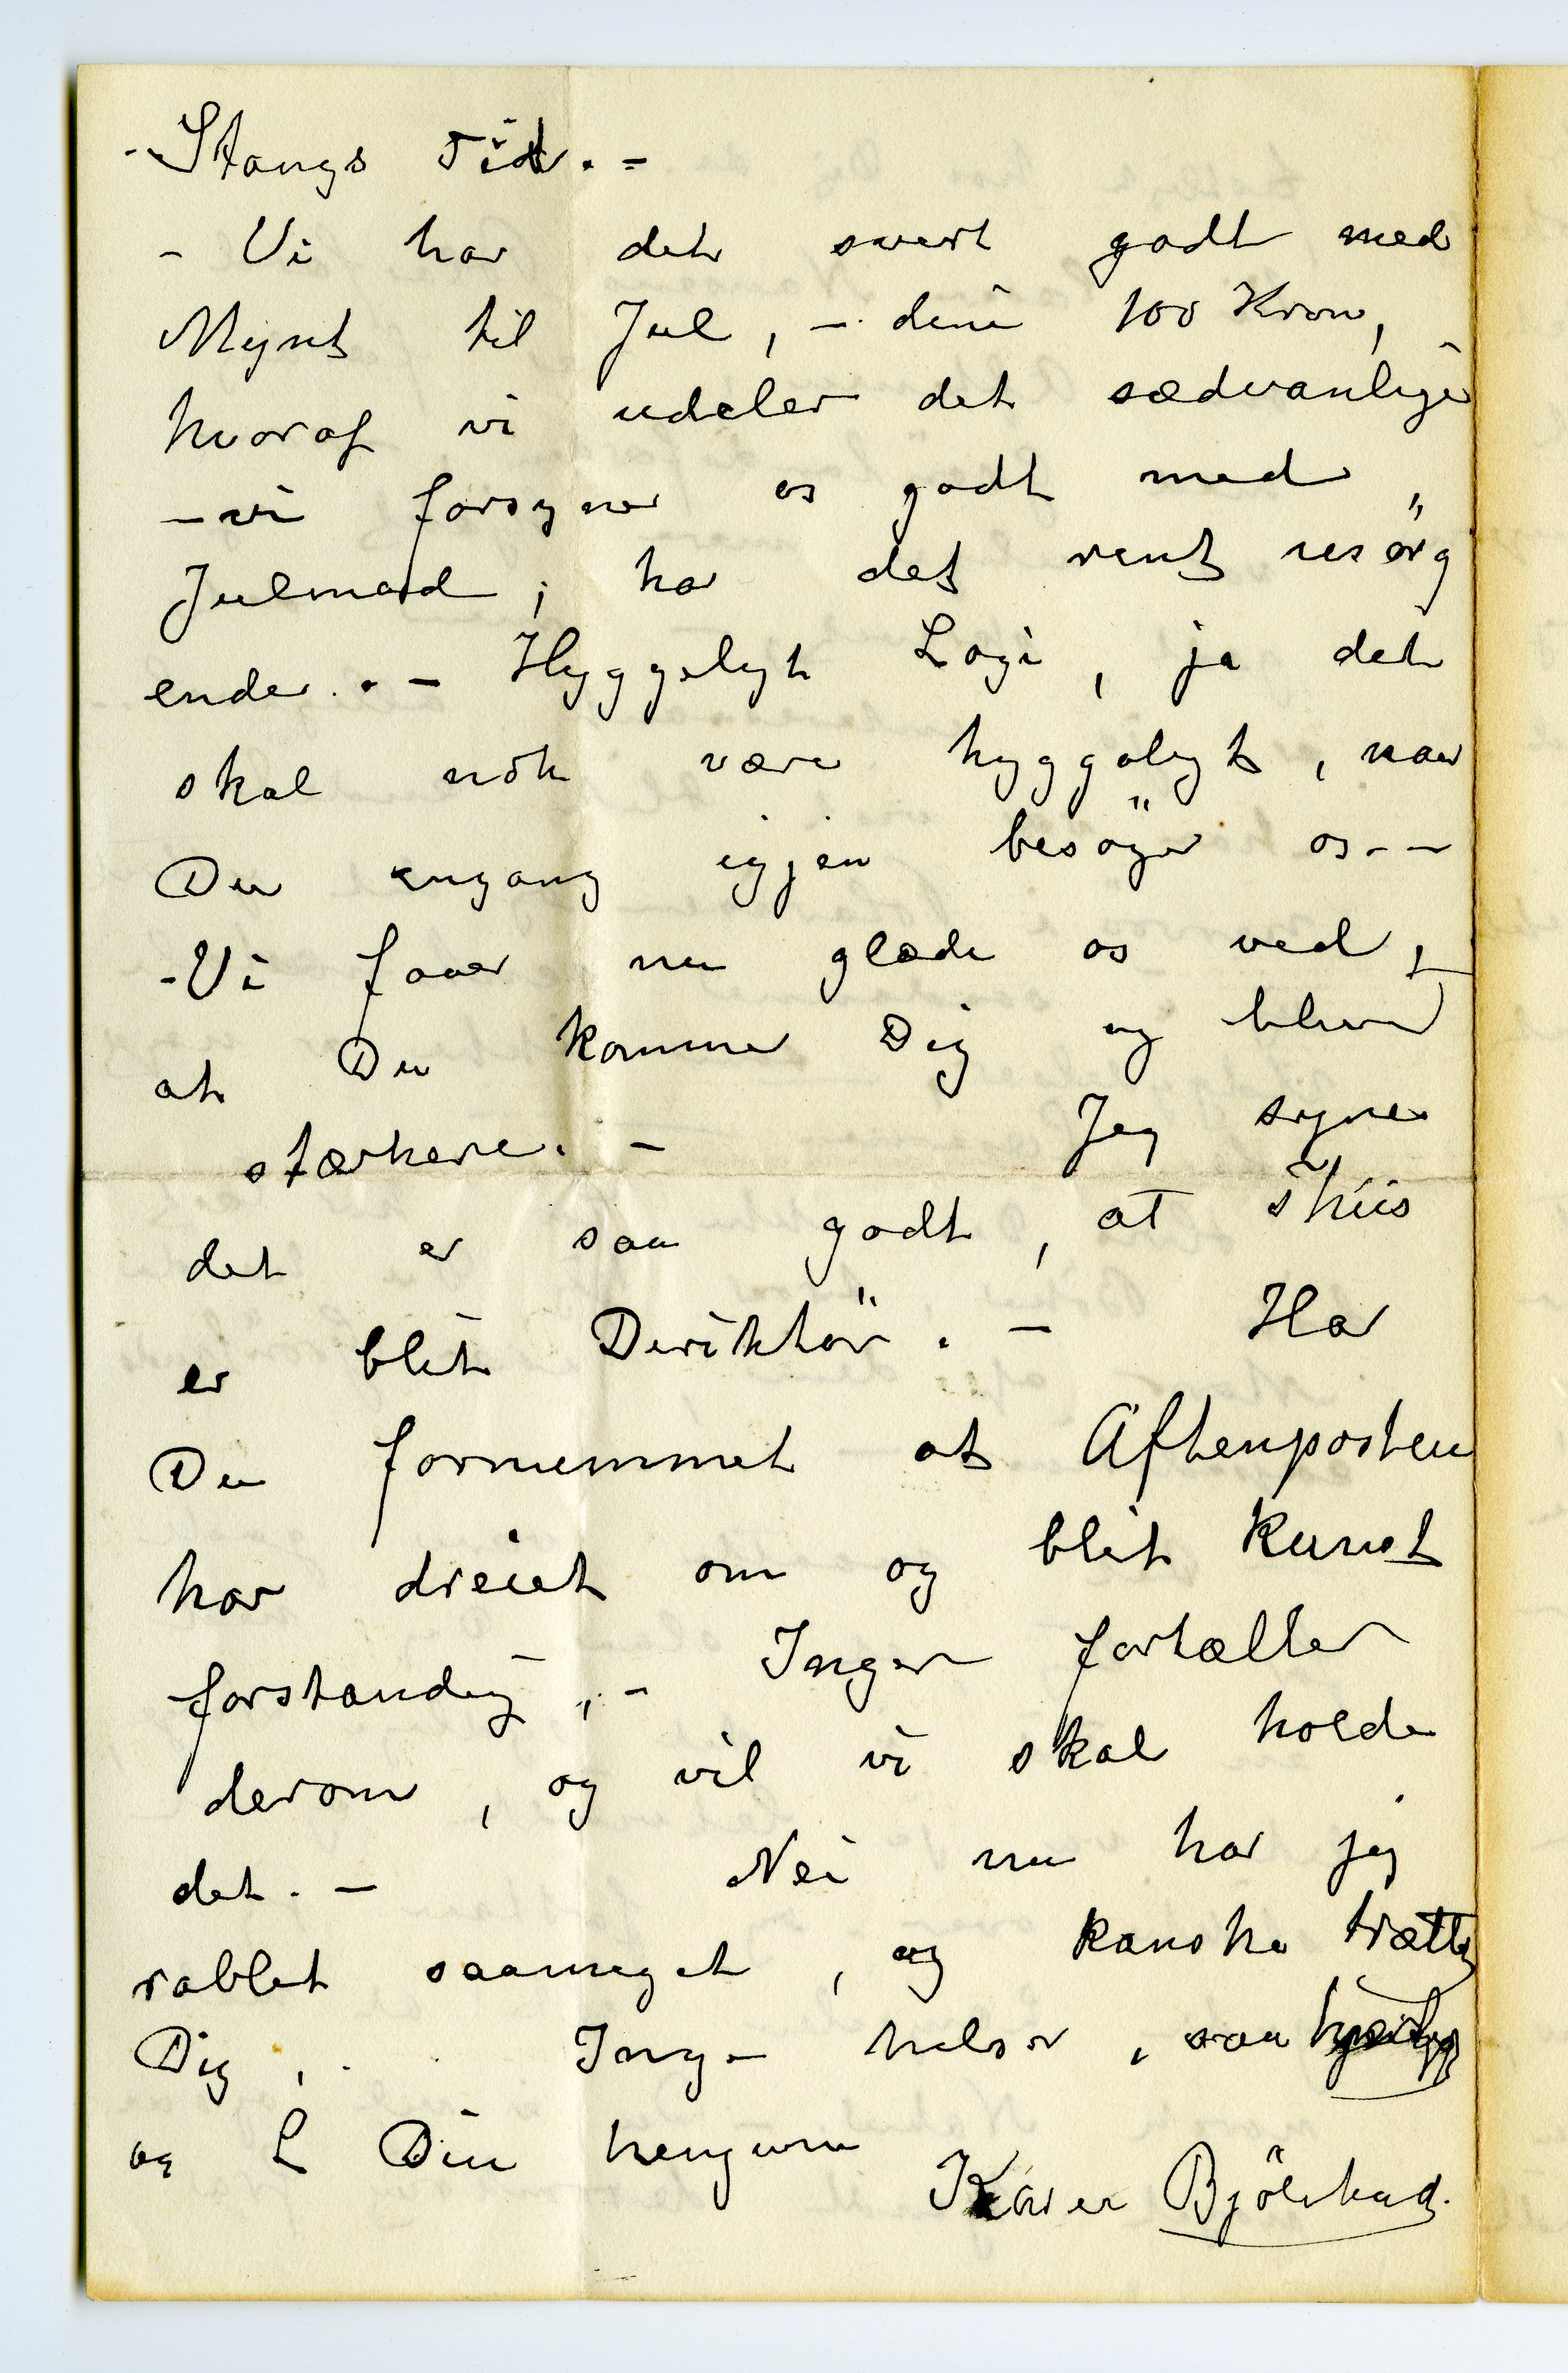 - Stangs Tid. =
- Vi har det svert godt med
Mynt til Jul, – dine 100 Kron,
hvoraf vi udeler det sædvanlige
– vi forsyner os godt med
Julemad; har det rent usörg
ende. – Hyggeligt Logi, ja det
skal nok være hyggeligt, naar
Du engang igjen besöger os. –
- Vi faaer nu glæde os ved, –
at Du kommer Dig og bliver
stærkere. – Jeg synes
det er saa godt, at Thiis
er blit Diriktör. – Har
Du fornummet at Aftenposten
har dreiet om og blit Kunst
forstandig, – Inger fortæller
derom, og vil vi skal holde
det. – Nei nu har jeg
rablet saameget, og kanske trætte
Dig, . Inger hilser, saa hjertelig
og Din hengivne
Karen Bjölstad.